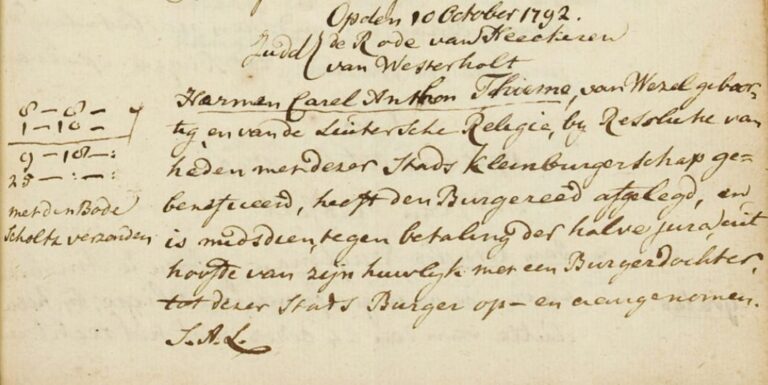 Op den 10 October 1792.
Judd de Rode van Heeckeren
van Westerholt
Harmen Carel Anthon Thieme, van Wezel geboor-
tig, en van de Lutersche Religie, by Resolutie van
heden met dezer Stads Kleinburgerschap ge-
beneficeerd, heeft den Burgereed afgelegd, en
is midsdien, tegen betaling der halve jura, uit
hoofde van zijn huwlijk met een Burgerdochter,
tot dezer Stads Burger op- en aangenomen.
S. A. L.
8 - 8 -
1 - 10 -
9 - 18 - :
25 - : - :
met den Bode
Scholtz verzonden